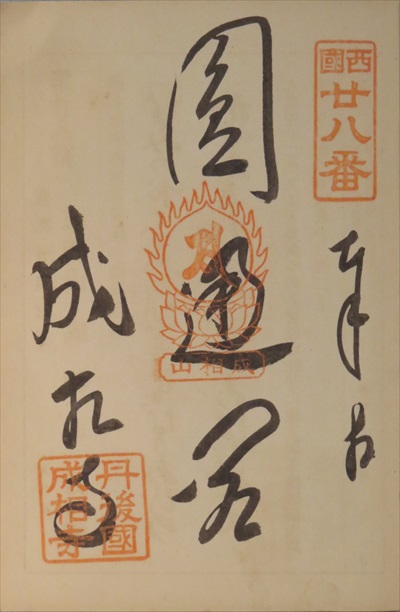 西國
廿八番
奉拝
圓通閣
成相山
成相寺
丹後國
成相寺